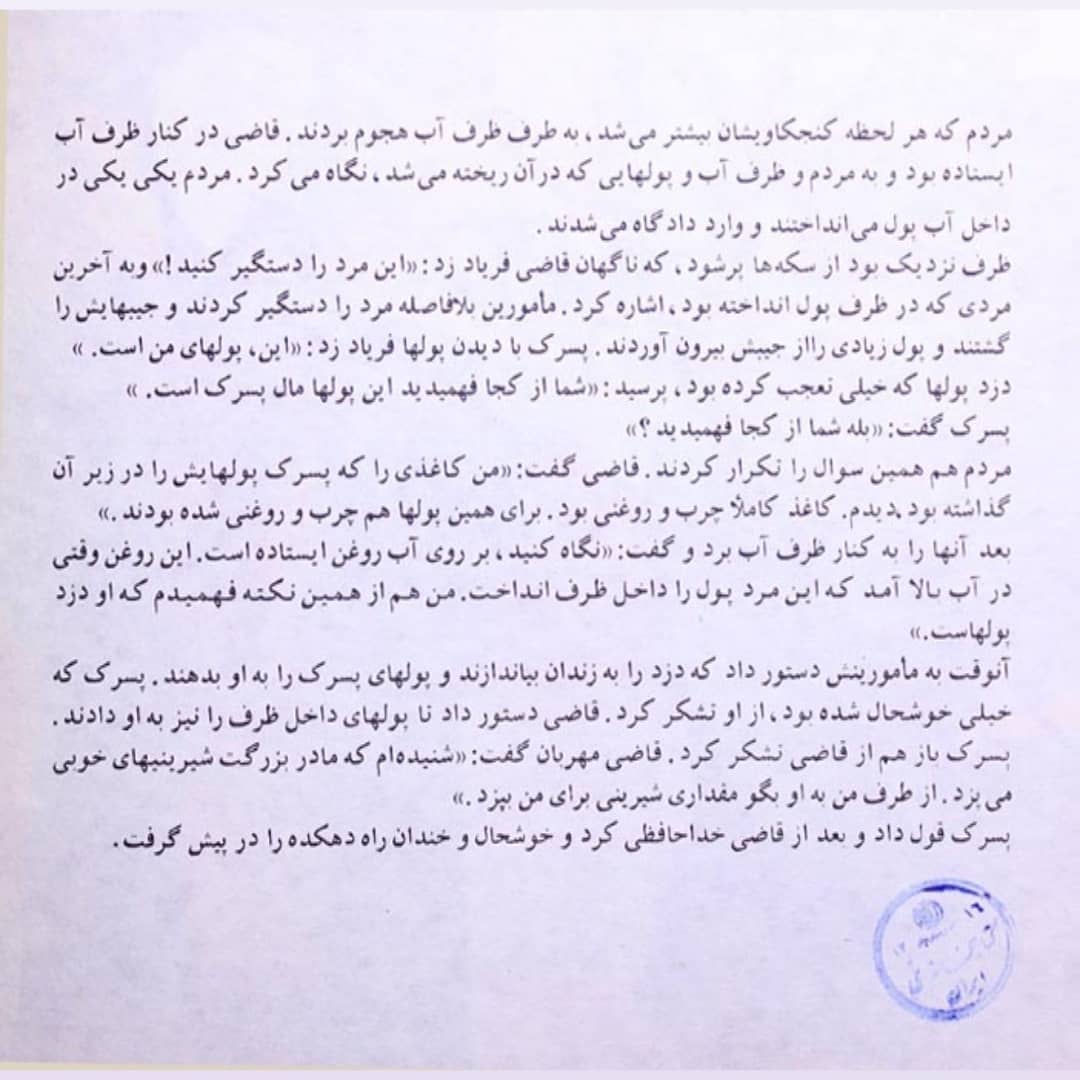 مردم که هر لحظه کنجکاویشان بیشتر می‌شد، به طرف ظرف آب هجوم بردند. قاضی در کنار ظرف آب
ایستاده بود و به مردم و ظرف آب و پولهایی که درآن ریخته می‌شد، نگاه می کرد. مردم یکی یکی در
داخل آب پول می‌انداختند و وارد دادگاه می‌شدند.
ظرف نزدیک بود از سکه‌ها پرشود، که ناگهان قاضی فریاد زد: «این مرد را دستگیر کنید!» وبه آخرین
مردی که در ظرف پول انداخته بود، اشاره کرد. مأمورین بلافاصله مرد را دستگیر کردند و جیبهایش را
گشتند و پول زیادی رااز جیبش بیرون آوردند. پسرک با دیدن پولها فریاد زد: «این، پولهای من است.»
دزد پولها که خیلی تعجب کرده بود، پرسید: «شما از کجا فهمیدید این پولها مال پسرک است.»
پسرک گفت: «بله شما از کجا فهمیدید؟»
مردم هم همین سوال را تکرار کردند. قاضی گفت: «من کاغذی را که پسرک پولهایش را در زیر آن
گذاشته بود دیدم. کاغذ کاملاً چرب و روغنی بود. برای همین پولها هم چرب و روغنی شده بودند.»
بعد آنها را به کنار ظرف آب برد و گفت: «نگاه کنید، بر روی آب روغن ایستاده است. این روغن وقتی
در آب بالا آمد که این مرد پول را داخل ظرف انداخت. من هم از همین نکته فهمیدم که او دزد
پولهاست.»
آنوقت به مأمورینش دستور داد که دزد را به زندان بیاندازند و پولهای پسرک را به او بدهند. پسرک که
خیلی خوشحال شده بود، از او تشکر کرد. قاضی دستور داد تا پولهای داخل ظرف را نیز به او دادند.
پسرک باز هم از قاضی تشکر کرد. قاضی مهربان گفت: «شنیده‌ام که مادر بزرگت شیرینیهای خوبی
می پزد. از طرف من به او بگو مقداری شیرینی برای من بپزد.»
پسرک قول داد و بعد از قاضی خداحافظی کرد و خوشحال و خندان راه دهکده را در پیش گرفت.
ایران